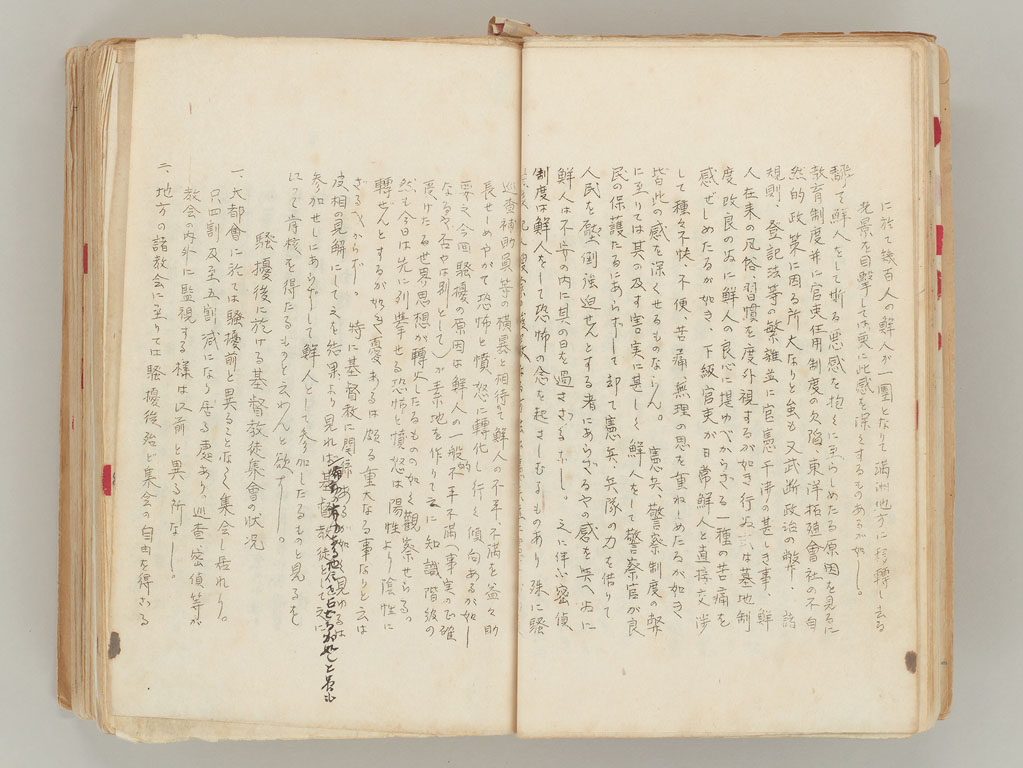 に於て幾百人の鮮人が一團となりて満洲地方に移轉し去る
光景を目撃しては更に此感を深くするものあるが如し。
飜て鮮人をして斯る悪感を抱くに至らしめたる原因を見るに
教育制度并に官吏任用制度の欠陥、東洋拓殖會社の不自
然的政策に因る所大なりと虽も又武断政治の弊、諸
規則、登記法等の繁雑並に官憲干渉の甚しき事、鮮
人在来の風俗、習慣を度外視するが如き行為又は墓地制
度改良の為に鮮人の良心に堪ゆべからざる一種の苦痛を
感ぜしめたるが如き、下級官吏が日常鮮人と直接交渉
して種々不快、不便、苦痛、無理の思を重ねしめたるが如き
皆此の感を深くせるものならん。 憲兵、警察制度の弊
に至りては其の及す害実に甚しく鮮人をして警察官が良
民の保護たるにあらずして却て憲兵、兵隊の力を借りて
人民を壓倒強迫せんとする者にあらざるやの感を与へ為に
鮮人は不安の内に其の日を過さざるなし。之に伴ふ密偵
制度は鮮人をして恐怖の念を起さしむるものあり殊に騒
巡査補助員等の横暴と相待て鮮人の不平、不満を益々助
長せしめやがて恐怖と憤怒に轉化し行く傾向あるが如し
要之、今回騒擾の原因は鮮人の一般的不平不満(事実の正確
なるや否やは別として)が素地を作りて之に知識階級の
受けたる世界思想が轉火したるものの如く觀察せらる。
然も今日は先に列挙せる恐怖と憤怒は陽性より陰性に
轉ぜんとするが如き憂あるは頗る重大なる事なりと云は
ざるべからず。 特に基督教に関係あるが如く見ゆるは
皮相の見解にして之を結果より見れば基督教徒として之に
参加せしにあらずして鮮人として参加したるものと見るを
以て肯綮を得たるものと云わんと欲す。
騒擾後に於ける基督教徒集會の状况
一、大都會に於ては騒擾前と異ることなく集会し居れり。
只四割乃至五割減になり居る處あり、巡査密偵等が
教会の内外に監視する様は以前と異る所なし。
二、地方の諸教会に至りては騒擾後殆ど集会の自由を得ざる